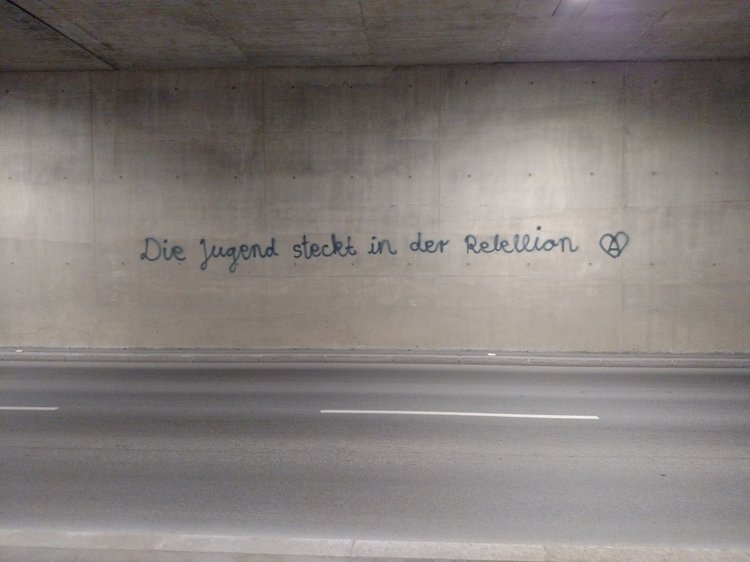 Die Jugend steckt in der Rebellion Ⓐ